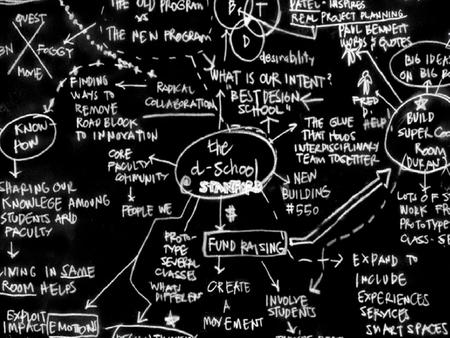 THE OLD PROGRAM
THE NEW PROGRAM
B
T
D
desirability
PATEL - INSPIRES
REAL PROJECT PLANNING
PAUL BENNETT
WORDS & QUOTES
BIG IDEAS
ON BIG
QUEST
FOGGY
MOVIE
FINDING
WAYS TO
REMOVE
ROAD BLOCK
TO INNOVATION
RADICAL
COLLABORATION
WHAT IS OUR INTENT?
"BEST DESIGN
SCHOOL"
FRED
HELP
BUILD
SUPER COOL
ROOM
(DURAN)
KNOW-
POW
CORE
FACULTY
COMMUNITY
the
d-School
@ STANFORD
THE GLUE
THAT HOLDS
INTERDISCIPLINARY
TEAM TOGETHER
SHARING OUR
KNOWLEGE AMONG
STUDENTS AND
FACULTY
PEOPLE WE
NEW
BUILDING
#550
LOTS OF
WORK
PROTOTYPE
CLASS-
$
FUND RAISING
PROTO-
TYPE
SEVERAL
CLASSES
WHAT
DIFFEREN
LIVING IN SAME
ROOM HELPS
CREATE
A
MOVEMENT
INVOLVE
STUDENTS
EXPAND TO
INCLUDE
EXPERIENCES
SERVICES
SMART SPACES
EXPLOIT
IMPACT
EMOTION